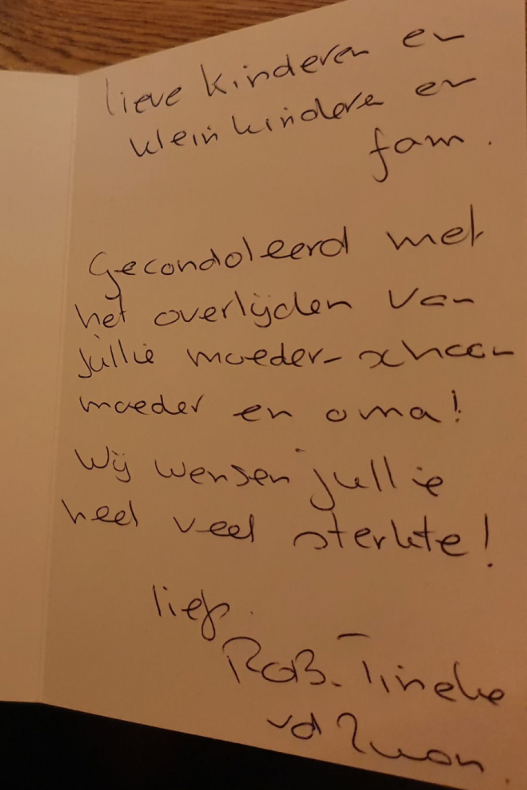 lieve kinderen en
kleinkindere en
fam.
Gecondoleerd met
het overlijden van
jullie moeder-schoon
moeder en oma!
Wij wensen jullie
heel veel sterkte!
liefs.
RoB-Tineke
vd Zwan.